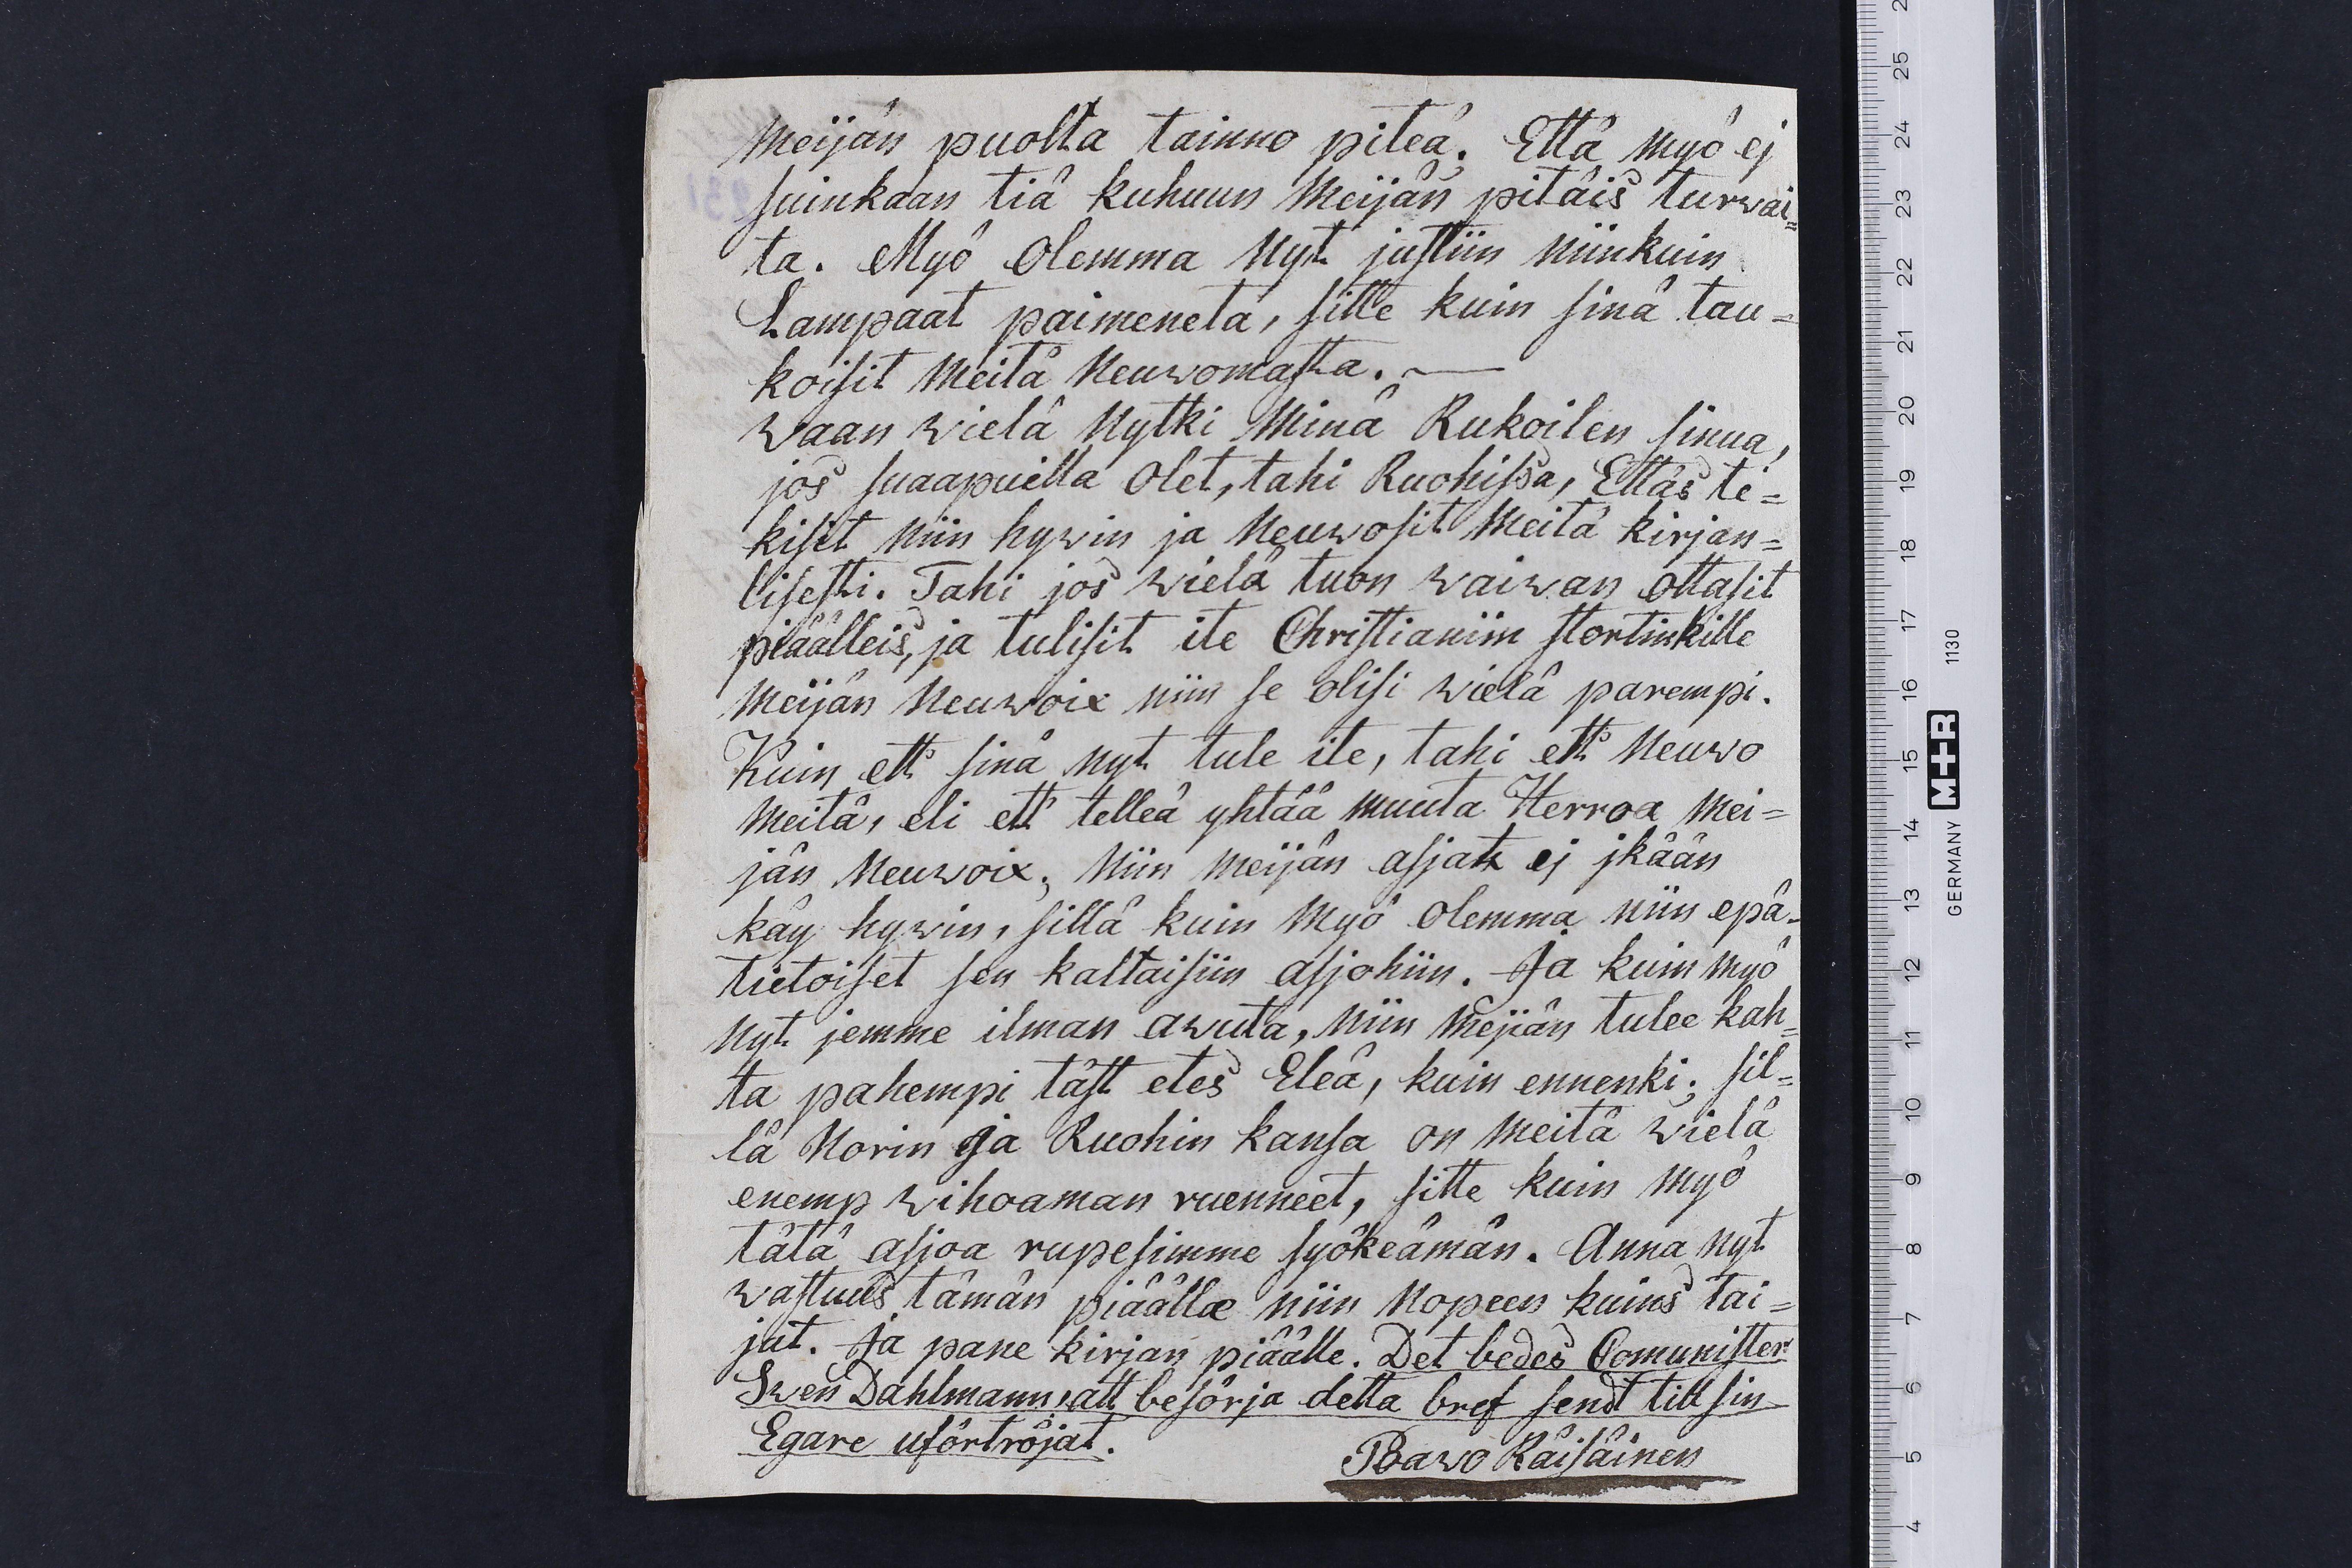 Meijän puolta tainno piteä. Että myö ej
suinkaan tiä kuhuun Meijän pitäis turwai=
ta. Myö Olemma Nyt justiin Niinkuin
Lampaat paimeneta, sitte kuin sinä tau=
koisit Meitä Neuwomasta. —
Waan wielä Nytki Minä Rukoilen sinua,
jos suaapuilla Olet, tahi Ruohissa, Ettäs te=
kisit Niin hywin ja Neuwosit Meitä kirjan=
lisesti. Tahi jos wielä tuon waiwan ottasit
piäälleis, ja tulisit ite Christianiin stortinkille
Meijän Neuwoix niin se olisi wielä parempi.
Kuin ett sinä nyt tule ite, tahi ett Neuwo
Meitä, eli ett telleä yhtää muuta Herroa Mei=
jän Neuwoix, Niin Meijän asjat ej jkään
käy hywin, sillä kuin Myö Olemma niin epä=
tietoiset sen kaltaisiin asjohiin. Ja kuin Myö
Nyt jemme ilman awuta, niin Meijän tulee kah=
ta pahempi täst etes Eleä, kuin ennenki; sil=
lä Norin ja Ruohin kansa on Meitä wielä
enemp wihoaman ruenneet, sitte kuin Myö
tätä asjoa rupesimme syökeämän. Anna Nyt
wastuus tämän piäälle niin Nopeen kuins tai=
jat. Ja pane kirjan piäälle. Det bedes Comunister
Swen Dahlmann, att besörja detta bref sendt till sin
Egare uförtröjat.
Pawo Räisäinen
25
24
23
22
21
20
19
18
17
16
15
14
13
12
11
10
9
8
7
6
5
4
GERMANY M+R 1130